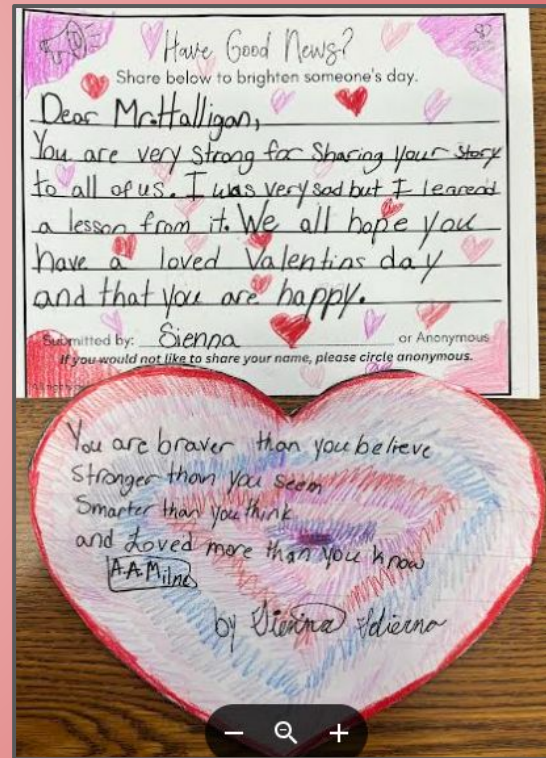 Have Good News?
Share below to brighten someone's day.
Dear Mr.Halligan,
You are very strong for Sharing your story
to all of us. I was very sad but I learend
a lesson from it. We all hope you
have a loved Valentins day
and that you are happy.
Submitted by: Sienna or Anonymous
If you would not like to share your name, please circle anonymous.
You are braver than you believe
Stronger than you seem
Smarter than you think
and Loved more than you know
A.A.Milne
by Sienna